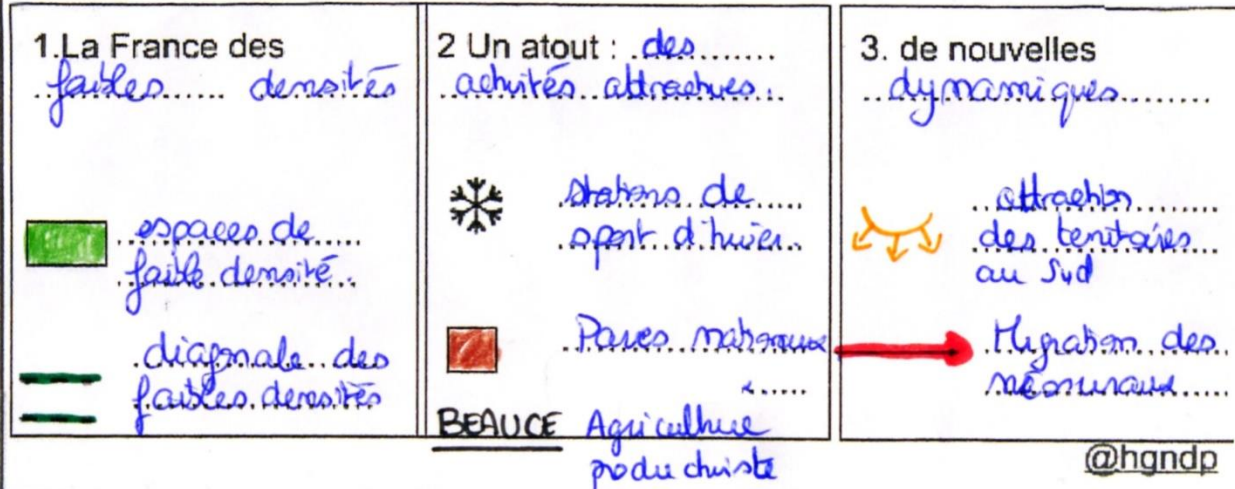 1.La France des
faibles densités
espaces de
faible densité.
diagonale des
faibles densités
2 Un atout : des
activités attractives.
stations de
sport d'hiver.
Parcs nationaux
BEAUCE Agriculture
productiviste
3. de nouvelles
dynamiques
attraction
des territoires
au Sud
Migration des
néoruraux
@hgndp